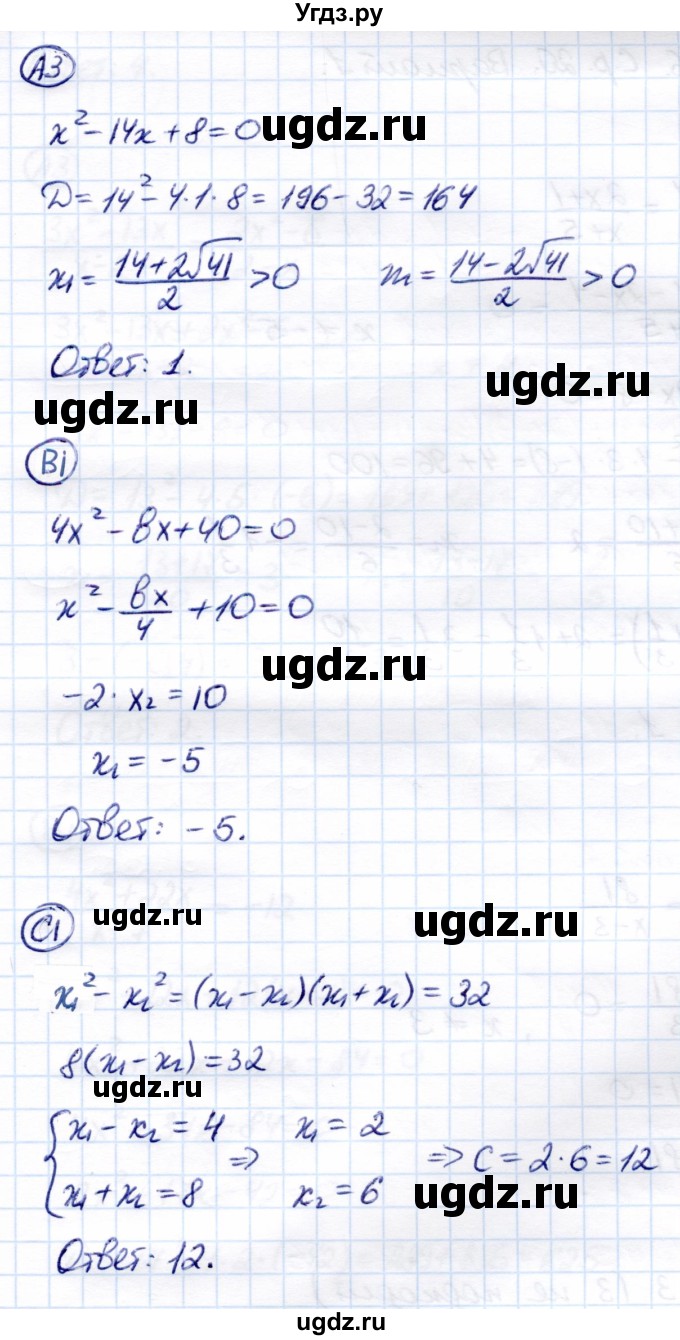 Угдз.ру
A3
x² - 14x + 8 = 0
ugdz.ru
D = 14² - 4·1·8 = 196 - 32 = 164
x₁ = (14 + 2√41)/2 > 0 m = (14 - 2√41)/2 > 0
Ответ: 1.
ugdz.ru
ugdz.ru
B1
4x² - bx + 40 = 0
x² - bx/4 + 10 = 0
ugdz.ru
-2 · x₂ = 10
x₂ = -5
Ответ: -5.
ugdz.ru
ugdz.ru
C1
x₁² - x₂² = (x₁ - x₂)(x₁ + x₂) = 32
8(x₁ - x₂) = 32
ugdz.ru
{ x₁ - x₂ = 4 ⇒ x₁ = 2
x₁ + x₂ = 8 x₂ = 6 ⇒ C = 2·6 = 12
ugdz.ru
Ответ: 12.
ugdz.ru